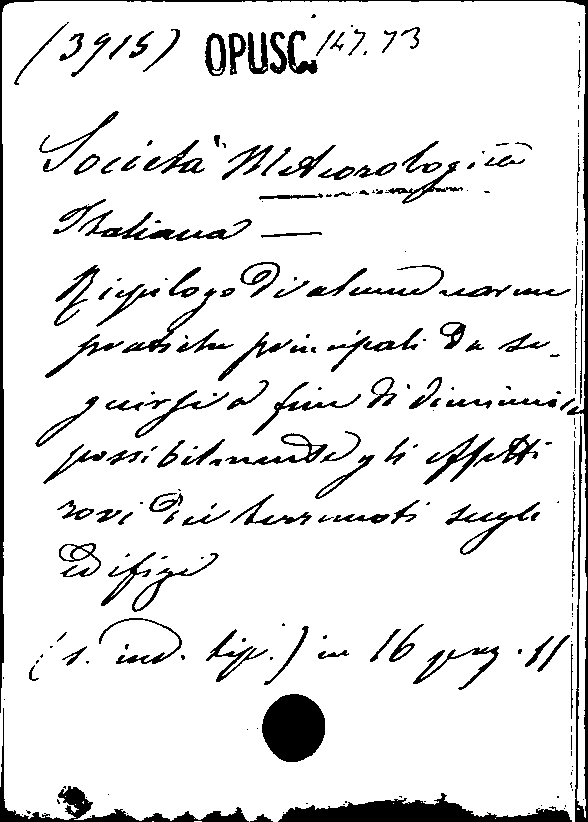 (3915) OPUSC. 147.73
Società Meteorologica
Italiana —
Riepilogo di alcune norme
pratiche principali da se-
guirsi a fine di diminuire
possibilmente gli effetti
rovi dei terremoti sugli
edifizi
(s. ind. tip.) in 16 pag. 11